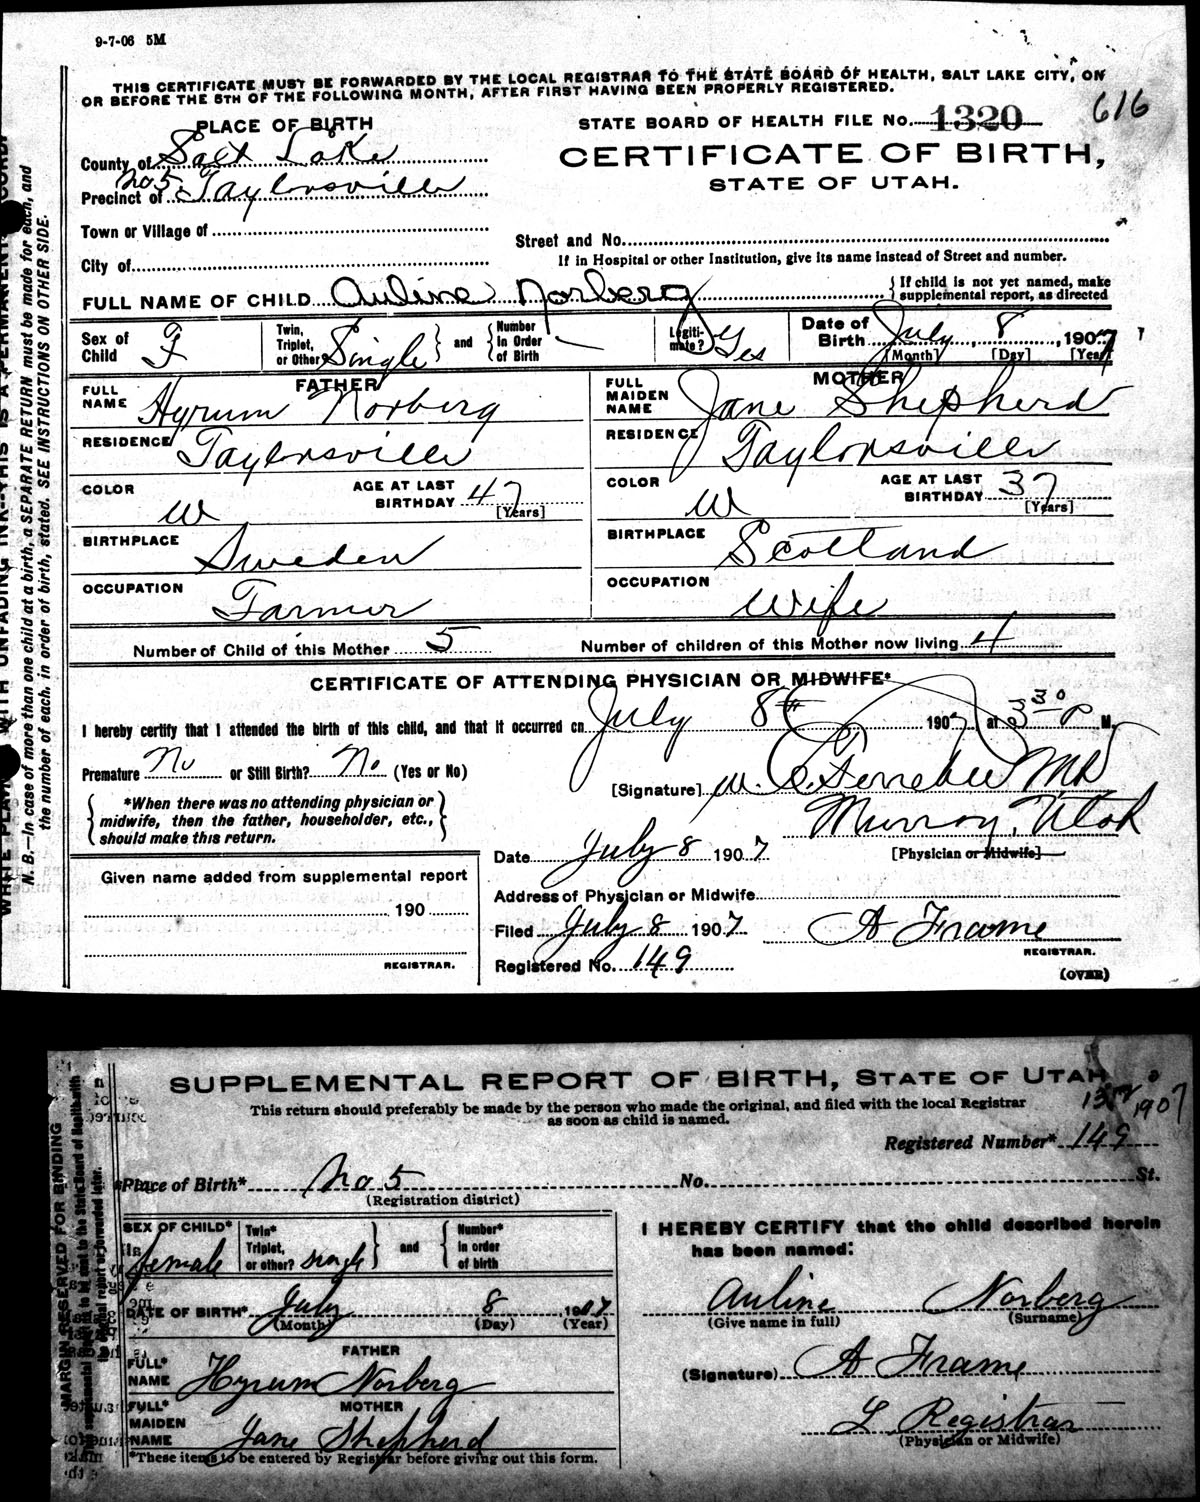 9-7-06 5M
THIS CERTIFICATE MUST BE FORWARDED BY THE LOCAL REGISTRAR TO THE STATE BOARD OF HEALTH, SALT LAKE CITY, ON
OR BEFORE THE 5TH OF THE FOLLOWING MONTH, AFTER FIRST HAVING BEEN PROPERLY REGISTERED.
PLACE OF BIRTH
STATE BOARD OF HEALTH FILE NO. 1320 616
County of Salt Lake
CERTIFICATE OF BIRTH,
No 5
Precinct of Taylorsville
STATE OF UTAH.
Town or Village of
Street and No.
City of
If in Hospital or other Institution, give its name instead of Street and number.
FULL NAME OF CHILD Auline Norberg
{ If child is not yet named, make
supplemental report, as directed
Sex of Child F
Twin, Triplet, or Other Single } and { Number in Order of Birth —
Legitimate? Yes
Date of Birth July 8, 1907
[Month] [Day] [Year]
FATHER
FULL NAME Hyrum Norberg
RESIDENCE Taylorsville
COLOR W
AGE AT LAST BIRTHDAY 47 [Years]
BIRTHPLACE Sweden
OCCUPATION Farmer
MOTHER
FULL MAIDEN NAME Jane Shepherd
RESIDENCE Taylorsville
COLOR W
AGE AT LAST BIRTHDAY 37 [Years]
BIRTHPLACE Scotland
OCCUPATION Wife
Number of Child of this Mother 5
Number of children of this Mother now living 4
CERTIFICATE OF ATTENDING PHYSICIAN OR MIDWIFE*
I hereby certify that I attended the birth of this child, and that it occurred on July 8th 1907, at 3 30 P M.
Premature No or Still Birth? No (Yes or No)
[Signature] W. MD
{ *When there was no attending physician or
midwife, then the father, householder, etc.,
should make this return. }
Murray, Utah
[Physician or Midwife]
Date July 8 1907
Given name added from supplemental report
190
REGISTRAR.
Address of Physician or Midwife
Filed July 8 1907 A Frame
REGISTRAR.
Registered No. 149
(OVER)
N. B.—In case of more than one child at a birth, a SEPARATE RETURN must be made for each, and
the number of each, in order of birth, stated. SEE INSTRUCTIONS ON OTHER SIDE.
SUPPLEMENTAL REPORT OF BIRTH, STATE OF UTAH
This return should preferably be made by the person who made the original, and filed with the local Registrar
as soon as child is named.
1907
Registered Number* 149
Place of Birth* No 5 No. St.
(Registration district)
SEX OF CHILD* female
Twin* Triplet, or other? single } and { Number* in order of birth
DATE OF BIRTH* July 8 1907
(Month) (Day) (Year)
FATHER
FULL* NAME Hyrum Norberg
MOTHER
FULL* MAIDEN NAME Jane Shepherd
*These items to be entered by Registrar before giving out this form.
I HEREBY CERTIFY that the child described herein
has been named:
Auline Norberg
(Give name in full) (Surname)
(Signature) A Frame
L Registrar
(Physician or Midwife)
MARGIN RESERVED FOR BINDING